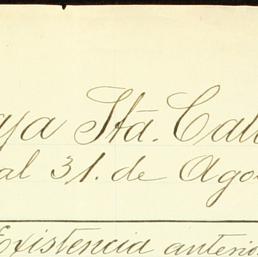 aja Sta. Cata
al 31. de Ago
Existencia anterio